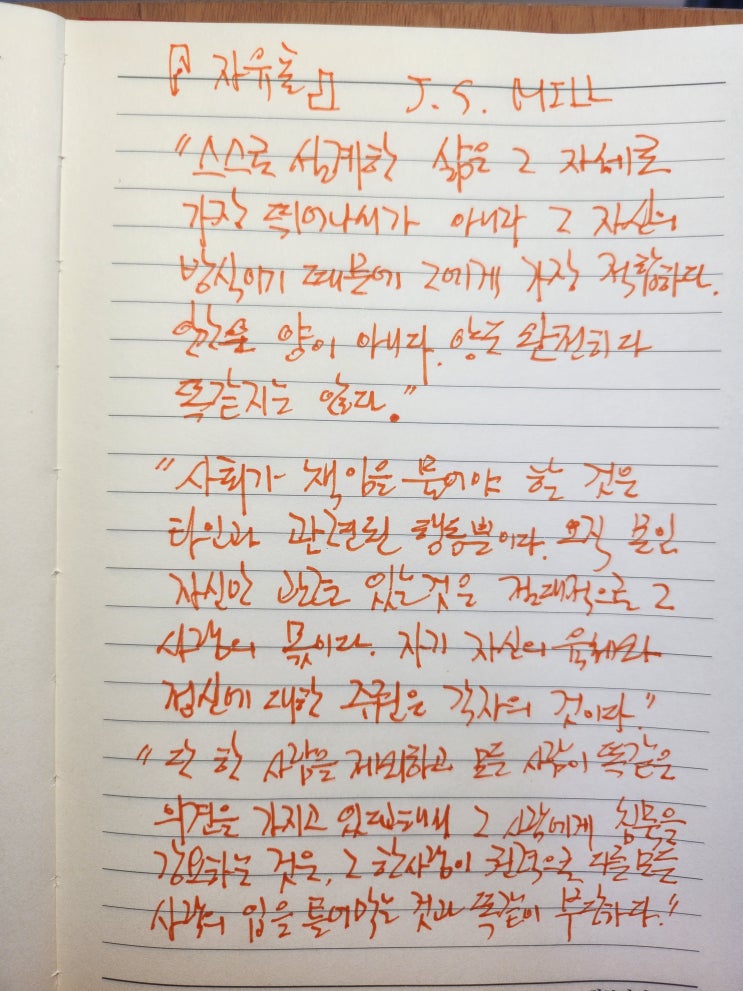 『자유론』 J. S. MILL
"스스로 설계한 삶은 그 자체로
가장 뛰어나서가 아니라 그 자신의
방식이기 때문에 그에게 가장 적합하다.
인간은 양이 아니다. 양도 완전히 다
똑같지는 않다."
"사회가 책임을 물어야 하는 것은
타인과 관련된 행동뿐이다. 오직 본인
자신만 관련 있는 것은 절대적으로 그
사람의 몫이다. 자기 자신의 육체와
정신에 대한 주권은 각자의 것이다."
"단 한 사람을 제외하고 모든 사람이 똑같은
의견을 가지고 있다고해서 그 사람에게 침묵을
강요하는 것은, 그 한사람이 권력으로 다른 모든
사람의 입을 틀어막는 것과 똑같이 부당하다."